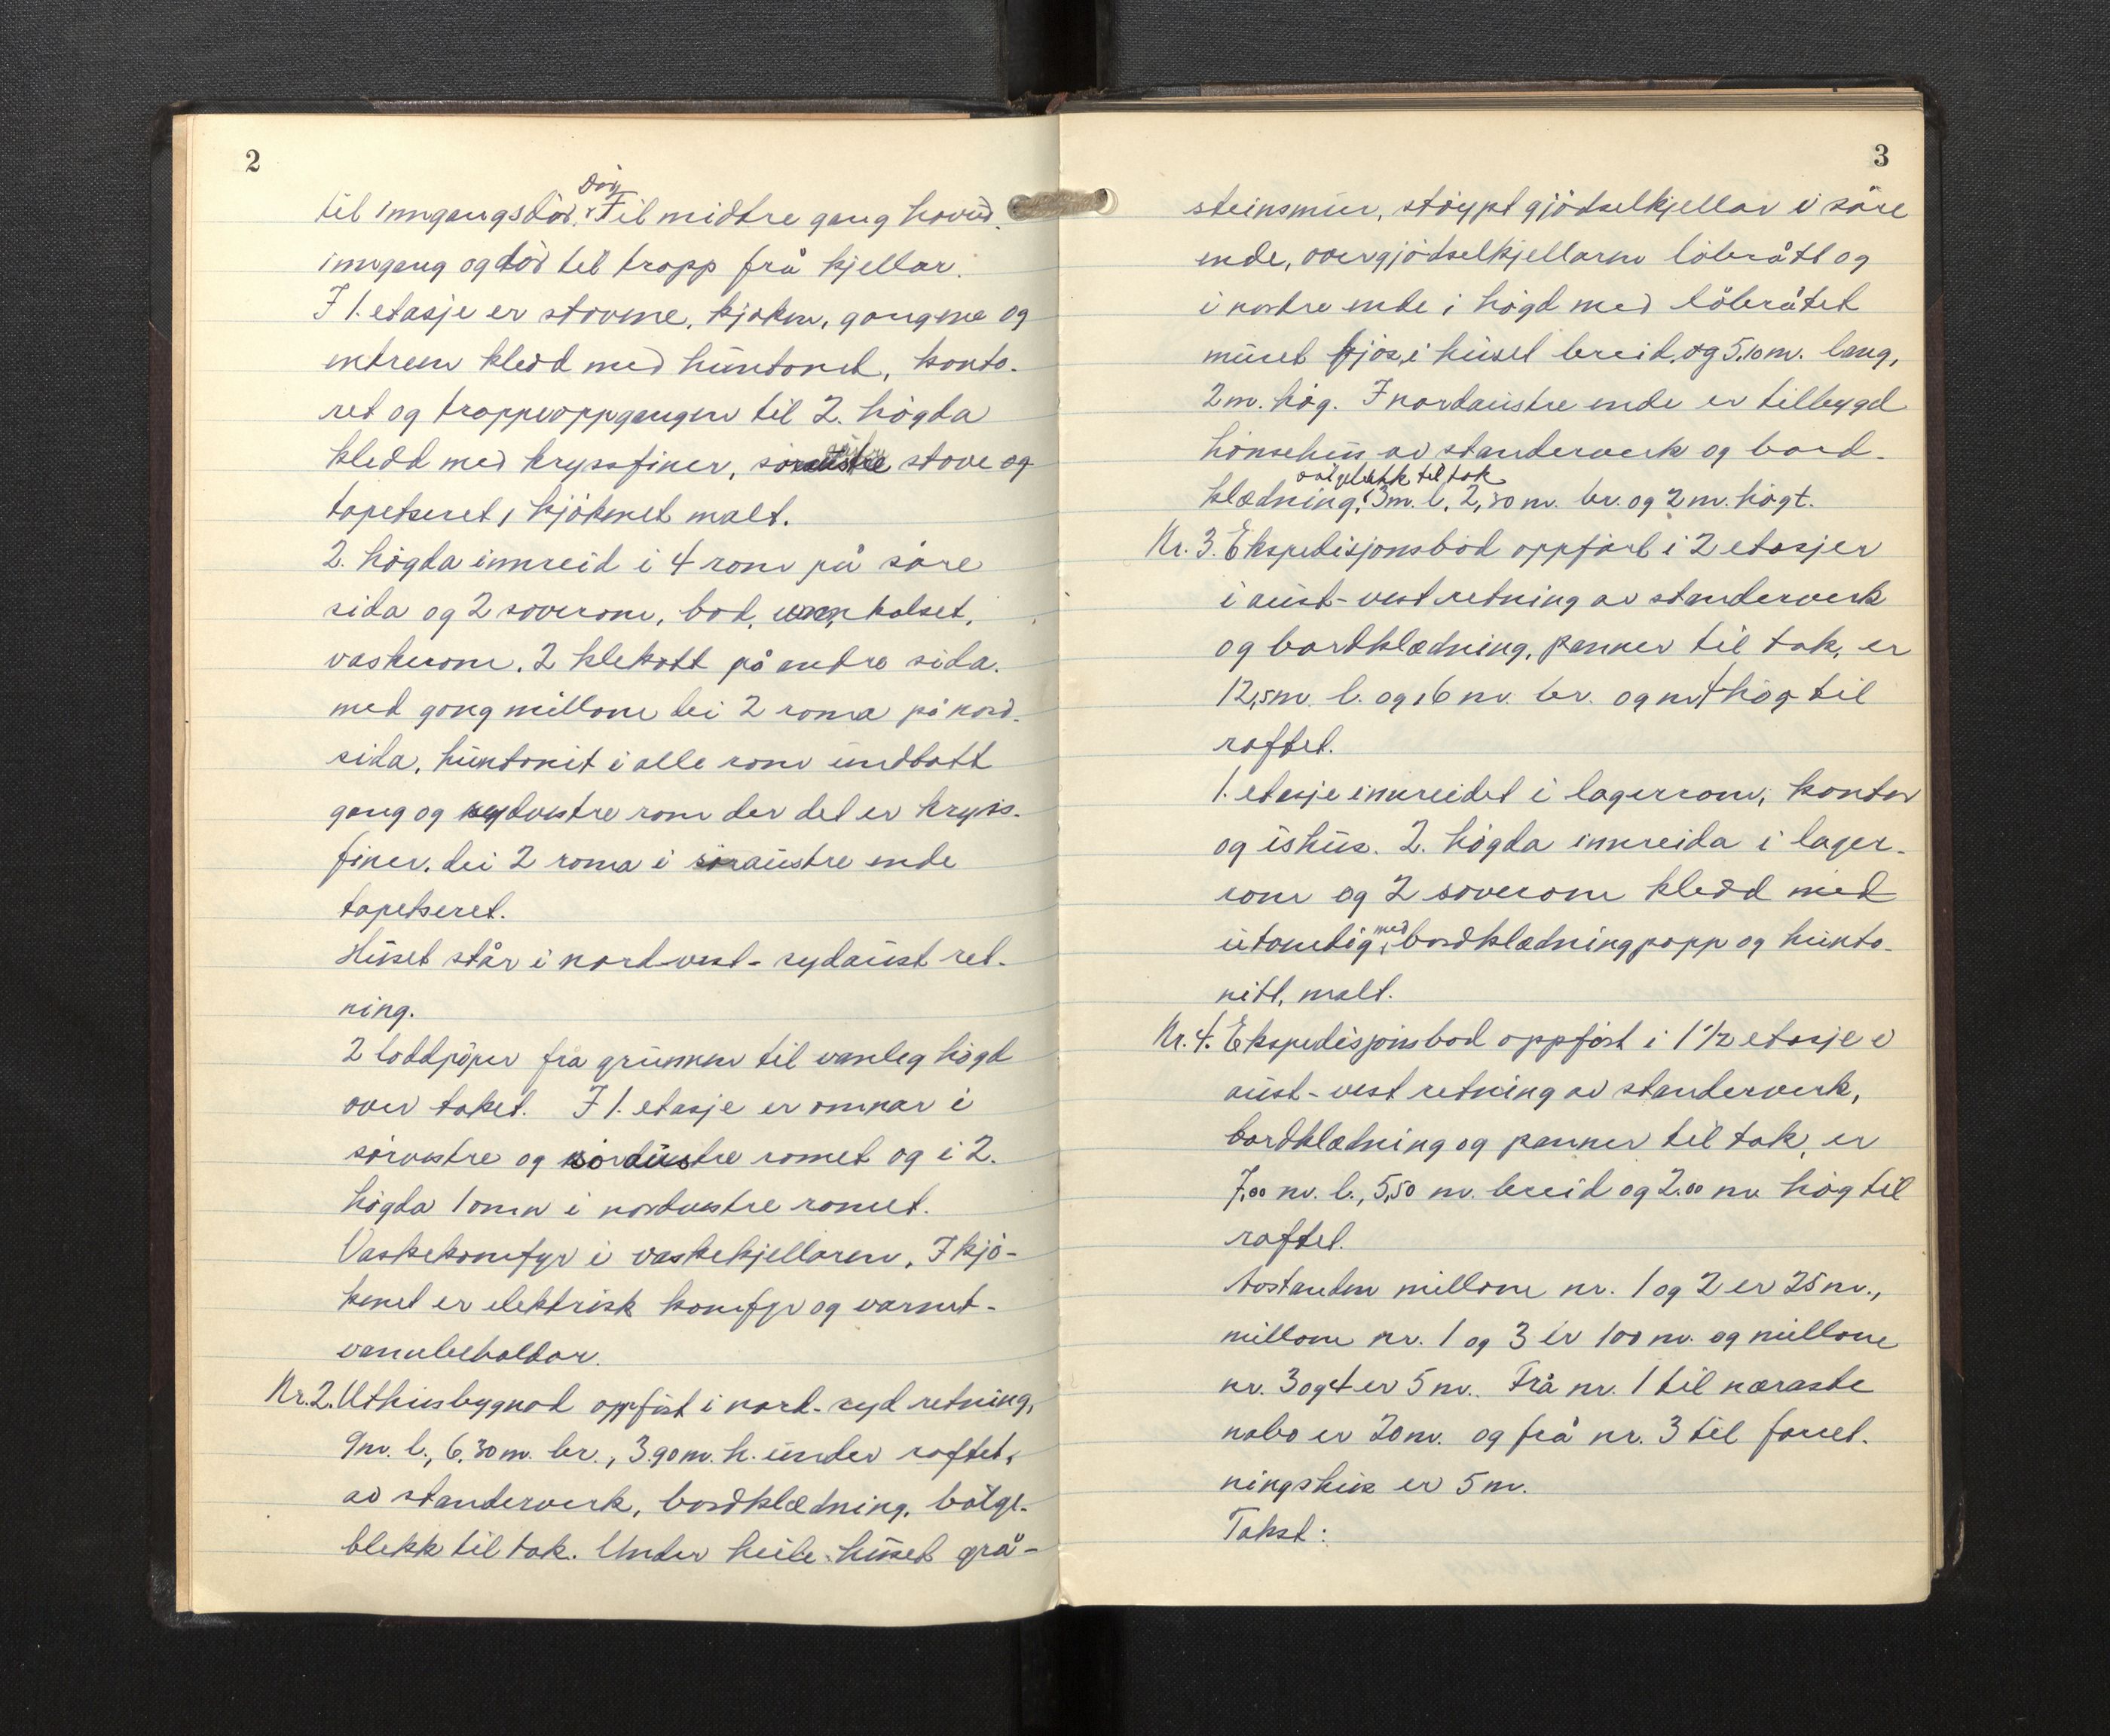 2
til inngangsdör. Dør Til midtre gang hovud.
inngang og dör til tropp frå kjellar.
I 1. etasje er stovene, kjöken, gangene og
entreen kledd med huntonit, konto-
ret og troppeoppgangen til 2. högda
kledd med kryssfiner, stove og
tapetseret, kjökenet malt.
2. högda innreid i 4 rom på söre
sida og 2 soverom, bod, kolset,
vaskerom. 2 klekott på andre sida.
med gong millom dei 2 roma på nord-
sida, huntonit i alle rom undtatt
gong og sydvestre rom der det er kryss-
finer. dei 2 roma i söraustre ende
tapetseret.
Huset står i nord-vest - sydaust ret-
ning.
2 loddpiper fra grunnen til vanleg högd
over taket. I 1. etasje er omnar i
sörvestre og nordaustre romet og i 2.
högda 1 omn i nordvestre romet.
Vaskekomfyr i vaskekjellaren, I kjö-
kenet er elektrisk komfyr og varmt-
vannbeholdar.
Nr. 2. Uthusbygnad oppfört i nord-syd retning,
9m. l., 6,30m. br., 3.90m. h. under raftet,
av standerverk, bordklædning, bölge-
blekk til tak. Under heile huset grå-
3
steinsmur, stöypt gjödselkjellar i söre
ende, over gjödselkjellaren löbrått og
i nordre ende i högd med löbråtet
muret fjös, i huset breid, og 5,10m. lang,
2m. hög. I nordaustre ende er tilbygd
hönsehus av standerverk og bord-
bölgeblekk til tak
klædning, 3m. l. 2,30m. br. og 2m. högt.
Nr. 3. Ekspedisjonsbod oppfört i 2 etasjer
i aust-vest retning av standerverk
og bordklædning, panner til tak, er
12,5m. l. og 6m. br. og m 4 hög til
raftet.
1. etasje innreidet i lagerrom, kontor
og ishus. 2. högda innreida i lager-
rom og 2 soverom kledd med
utvendig med bordklædning papp og hunto-
nitt, malt.
Nr. 4. Ekspedisjonsbod oppfört i 1 1/2 etasje i
aust-vest retning av standerverk,
bordklædning og panner til tak, er
7,00 m. l., 5,50 m. breid og 2.00 m hög til
raftet.
Avstanden millom nr. 1 og 2 er 25m.,
millom nr. 1 og 3 er 100 m. og millom
nr. 3 og 4 er 5 m. Frå nr. 1 til næraste
nabo er 20 m. og frå nr. 3 til forret-
ningshus er 5 m.
Takst: